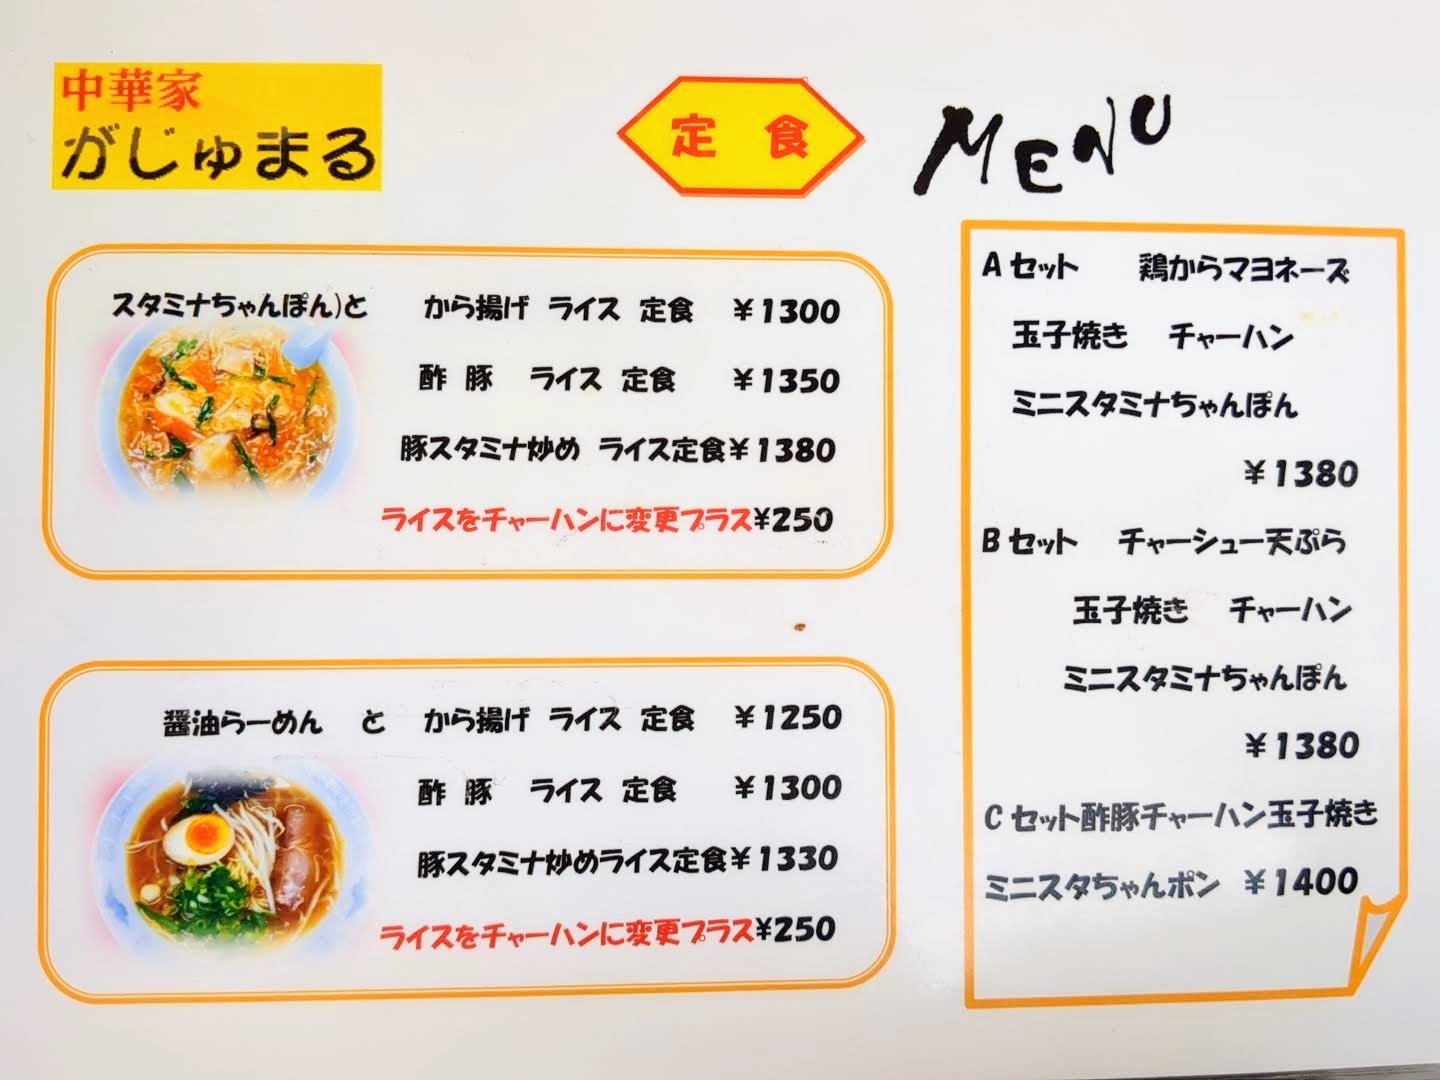 中華家
がじゅまる
定 食
MENU
スタミナちゃんぽん)と から揚げ ライス 定食 ￥1300
酢 豚 ライス 定食 ￥1350
豚スタミナ炒め ライス定食￥1380
ライスをチャーハンに変更プラス¥250
醤油らーめん と から揚げ ライス 定食 ￥1250
酢 豚 ライス 定食 ￥1300
豚スタミナ炒めライス定食￥1330
ライスをチャーハンに変更プラス¥250
Aセット 鶏からマヨネーズ
玉子焼き チャーハン
ミニスタミナちゃんぽん
￥1380
Bセット チャーシュー天ぷら
玉子焼き チャーハン
ミニスタミナちゃんぽん
￥1380
Cセット酢豚チャーハン玉子焼き
ミニスタちゃんポン ￥1400